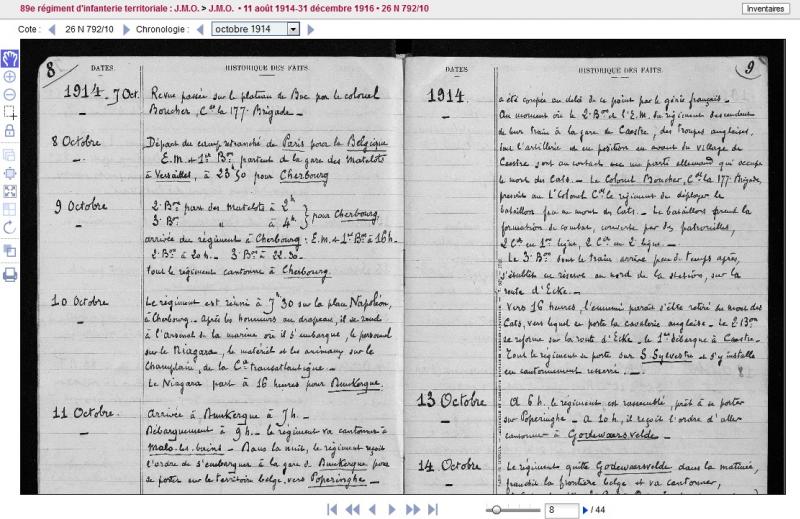 89e régiment d'infanterie territoriale : J.M.O. > J.M.O. • 11 août 1914-31 décembre 1916 • 26 N 792/10
Inventaires
Cote : 26 N 792/10 Chronologie : octobre 1914
8 DATES. HISTORIQUE DES FAITS.
1914 _ 7 Oct. Revue passée sur le plateau de Buc par le colonel
Boucher, Ct la 177e Brigade _
8 Octobre Départ du camp retranché de Paris pour la Belgique
E.M. + 1er Bon partent de la gare des Matelots
à Versailles, à 23h50 pour Cherbourg
9 Octobre 2e Bon part des Matelots à 2h
3e Bon " à 4h } pour Cherbourg
arrivée du régiment à Cherbourg : E.M. + 1er Bon à 16h _
2e Bon à 20h _ 3e Bon à 22.30 _
Tout le régiment cantonne à Cherbourg.
10 Octobre Le régiment est réuni à 7h30 sur la place Napoléon,
à Cherbourg _ Après les honneurs au drapeau, il se rend
à l'arsenal de la marine où il s'embarque, le personnel
sur le Niagara, le matériel et les animaux sur le
Champlain, de la Cie Transatlantique _
Le Niagara part à 16 heures pour Dunkerque.
11 Octobre. Arrivée à Dunkerque à 7h. _
Débarquement à 9h _ le régiment va cantonner à
Malo-les-bains _ Dans la nuit, le régiment reçoit
l'ordre de s'embarquer à la gare de Dunkerque pour
se porter sur le territoire belge, vers Poperinghe _
DATES HISTORIQUE DES FAITS. 9
1914 a été coupée au delà de ce point par le génie français _
Au moment où le 2e Bon et l'E.M. du régiment descendent
de leur train à la gare de Caestre, des troupes anglaises,
sur l'artillerie et en position en avant du village de
Caestre sont au contact avec un parti allemand qui occupe
le mont des Cats. _ Le Colonel Boucher, Ct la 177e Brigade,
prescrit au Lt Colonel Ct le régiment de déployer le
bataillon face au mont des Cats. _ Le bataillon prend la
formation de combat, couverte par des patrouilles,
2 Cies en 1ère ligne, 2 Cies en 2e ligne. _
Le 3e Bon dont le train arrive peu de temps après,
s'établit en réserve au nord de la station, sur la
route d'Ecke. _
Vers 16 heures, l'ennemi paraît s'être retiré du mont des
Cats, vers lequel se porte la cavalerie anglaise _ Le 2e Bon
se reforme sur la route d'Ecke _ le 1er débarque à Caestre _
Tout le régiment se porte sur S Sylvestre et s'y installe
en cantonnement resserré _
13 Octobre A 6h. le régiment est rassemblé, prêt à se porter
sur Poperinghe _ A 10h, il reçoit l'ordre d'aller
cantonner à Godewaersvelde _
14 Octobre Le régiment quitte Godewaersvelde dans la matinée,
franchit la frontière belge et va cantonner,
8 / 44